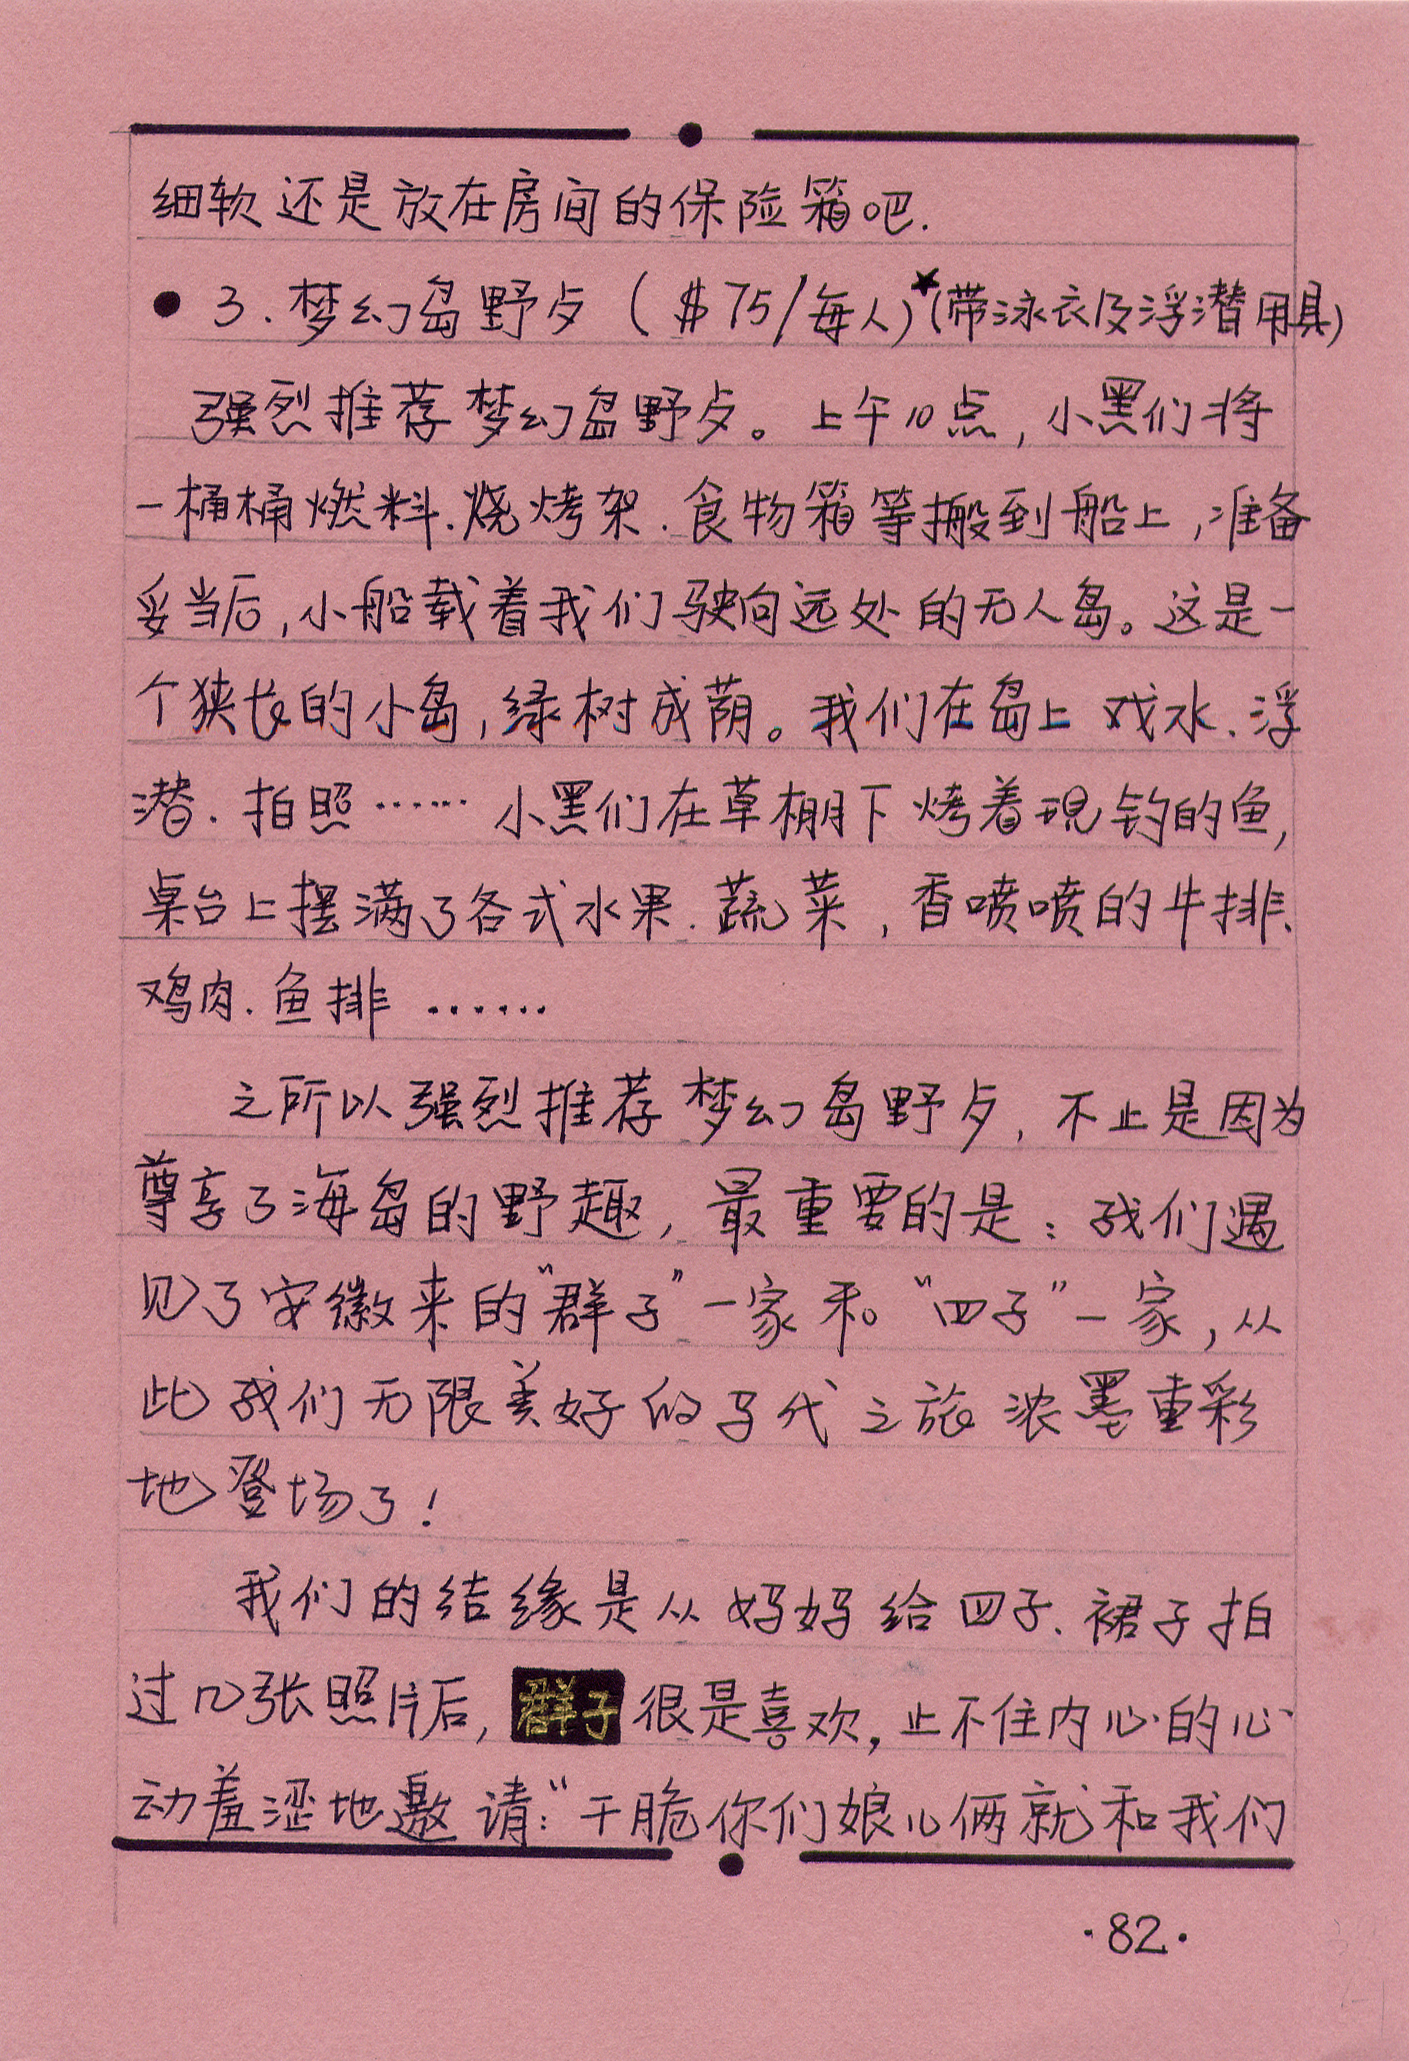 细软还是放在房间的保险箱吧.
● 3.梦幻岛野歺($75/每人)★(带泳衣及浮潜用具)
强烈推荐梦幻岛野歺。上午10点,小黑们将
一桶桶燃料.烧烤架.食物箱等搬到船上,准备
妥当后,小船载着我们驶向远处的无人岛。这是一
个狭长的小岛,绿树成荫。我们在岛上戏水.浮
潜.拍照……小黑们在草棚下烤着现钓的鱼,
桌台上摆满了各式水果.蔬菜,香喷喷的牛排、
鸡肉.鱼排……
之所以强烈推荐梦幻岛野歺,不止是因为
尊享了海岛的野趣,最重要的是:我们遇
见了安徽来的“群子”一家和“四子”一家,从
此我们无限美好的马代之旅浓墨重彩
地登场了!
我们的结缘是从妈妈给四子、裙子拍
过几张照片后,群子很是喜欢,止不住内心的心
动羞涩地邀请:“干脆你们娘儿俩就和我们
·82·